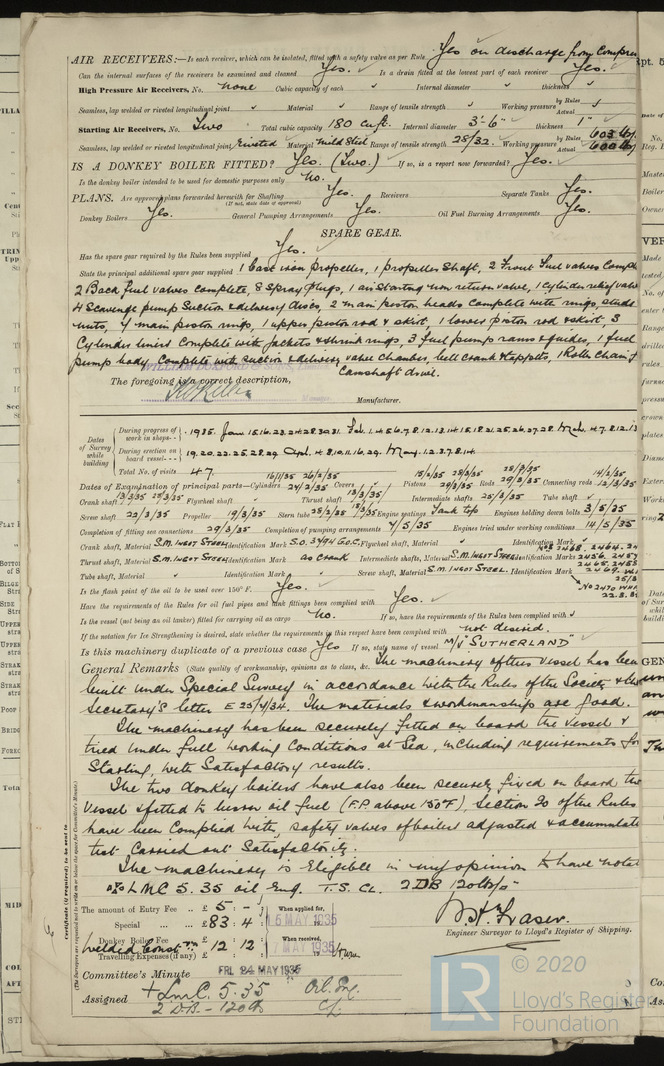 AIR RECEIVERS:— Is each receiver, which can be isolated, fitted with a safety valve as per Rule Yes on discharge from Compres
Can the internal surfaces of the receivers be examined and cleaned Yes. Is a drain fitted at the lowest part of each receiver Yes.
High Pressure Air Receivers, No. none Cubic capacity of each " Internal diameter " thickness "
Seamless, lap welded or riveted longitudinal joint " Material " Range of tensile strength " Working pressure by Rules Actual
Starting Air Receivers, No. Two Total cubic capacity 180 cu.ft. Internal diameter 3'-6" thickness 1"
Seamless, lap welded or riveted longitudinal joint Riveted Material Mild Steel Range of tensile strength 28/32 Working pressure by Rules 603 lbs. Actual 600 lbs.
IS A DONKEY BOILER FITTED? Yes. (Two.) If so, is a report now forwarded? Yes.
Is the donkey boiler intended to be used for domestic purposes only No.
PLANS. Are approved plans forwarded herewith for Shafting Yes. Receivers Separate Tanks Yes.
(If not, state date of approval)
Donkey Boilers Yes. General Pumping Arrangements Yes. Oil Fuel Burning Arrangements Yes.
SPARE GEAR.
Has the spare gear required by the Rules been supplied Yes.
State the principal additional spare gear supplied 1 Cast iron propeller, 1 propeller shaft, 2 Front fuel valves Comple
2 Back fuel valves complete, 8 Spray plugs, 1 air starting non return valve, 1 cylinder relief valve
4 Scavenge pump Suction & delivery discs, 2 main piston heads complete with rings, studs
nuts, 4 main piston rings, 1 upper piston rod & skirt, 1 lower piston rod & skirt, 3
Cylinder liners Complete with jackets & shrunk rings, 3 fuel pump rams & guides, 1 fuel
pump body Complete with suction & delivery valve chamber, bell crank & tappets, 1 Roller Chain for
Camshaft drive.
The foregoing is a correct description,
Manufacturer.
Dates of Survey while building
During progress of work in shops-- 1935. Jan 15.16.23.24.28.30.31 Feb. 1.4.5.6.7.8.12.13.14.15.18.21.25.26.27.28. Mch. 4.7.8.12.13
During erection on board vessel--- 19.20.22.25.28.29 Apl. 4.8.10.11.16.29. May. 1.2.3.7.8.14
Total No. of visits 47.
Dates of Examination of principal parts—Cylinders 16/1/35 26/2/35 24/2/35 Covers Pistons 15/2/35 28/2/35 Rods Connecting rods 14/2/35 12/3/35
Crank shaft 13/3/35 Flywheel shaft " Thrust shaft 13/3/35 Intermediate shafts 25/3/35 Tube shaft "
Screw shaft 22/3/35 Propeller 19/3/35 Stern tube 28/2/35 Engine seatings Tank top Engines holding down bolts 3/5/35
Completion of fitting sea connections 29/3/35 Completion of pumping arrangements 7/5/35 Engines tried under working conditions 14/5/35
Crank shaft, Material S.M. INGOT STEEL Identification Mark Flywheel shaft, Material " Identification Mark "
Thrust shaft, Material S.M. INGOT STEEL Identification Mark as Crank Intermediate shafts, Material S.M. INGOT STEEL. Identification Marks Nos 2468. 2464. 2456. 2457 2465. 2458
Tube shaft, Material " Identification Mark " Screw shaft, Material S.M. INGOT STEEL. Identification Mark 2469
No 2470
Is the flash point of the oil to be used over 150°F. Yes.
Have the requirements of the Rules for oil fuel pipes and tank fittings been complied with Yes.
Is the vessel (not being an oil tanker) fitted for carrying oil as cargo No. If so, have the requirements of the Rules been complied with
If the notation for Ice Strengthening is desired, state whether the requirements in this respect have been complied with not desired.
Is this machinery duplicate of a previous case Yes If so, state name of vessel M/V "SUTHERLAND"
General Remarks (State quality of workmanship, opinions as to class, &c. The machinery of this Vessel has been
built under Special Survey in accordance with the Rules of the Society & the
Secretary's letter E 25/4/34. The materials & workmanship are good.
The machinery has been securely fitted on board the Vessel &
tried under full working Conditions at Sea, including requirements for
Starting, with Satisfactory results.
The two donkey boilers have also been securely fixed on board the
Vessel & fitted to burn oil fuel (F.P. above 150°F), Section 20 of the Rules
have been Complied with, safety valves of boilers adjusted & accumulation
test Carried out Satisfactorily.
The machinery is Eligible in my opinion to have notation
of LMC 5.35 oil Eng. T.S. CL. 2DB 120 lbs"
The amount of Entry Fee .. £ 5 : - :
Special ... £ 83 : 4 :
Donkey Boiler Fee £ 12 : 12 :
Travelling Expenses (if any) £
When applied for, 15 MAY 1935
When received, 17 MAY 1935
W. H. Fraser.
Engineer Surveyor to Lloyd's Register of Shipping.
Committee's Minute FRI. 24 MAY 1935
Assigned + Lmc. 5.35 Oil Eng
2 D.B - 120 lb CL
Certificate (if required) to be sent to
(The Surveyors are requested not to write on or below the space for Committee's Minute.)
© 2020
LR
Lloyd's Register
Foundation